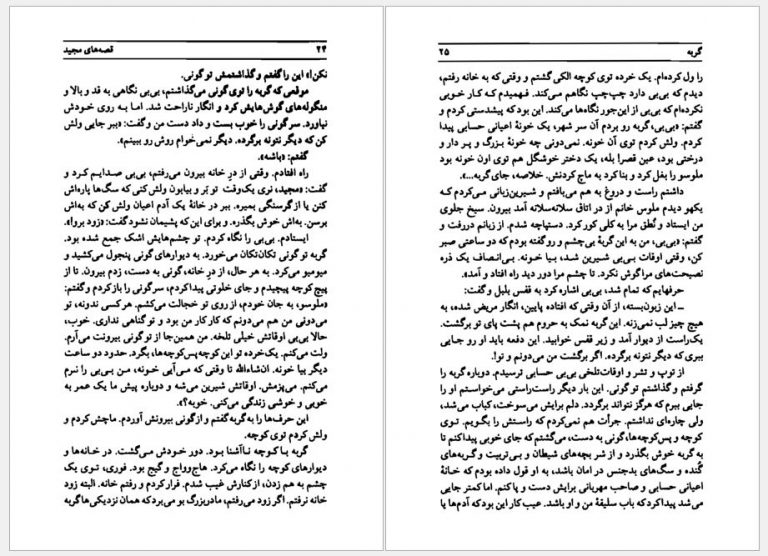 قصه‌های مجید
۲۴
نکن!» این را گفتم و گذاشتمش تو گونی.
موقعی که گربه را توی گونی می‌گذاشتم، بی‌بی نگاهی به قد و بالا و
منگوله‌های گوش‌هایش کرد و انگار ناراحت شد. اما به روی خودش
نیاورد. سر گونی را خوب بست و داد دست من و گفت: «ببر جایی ولش
کن که دیگر نتونه برگرده. دیگر نمی‌خوام روش رو ببینم».
گفتم: «باشه».
راه افتادم. وقتی از درِ خانه بیرون می‌رفتم، بی‌بی صدایم کرد و
گفت: «مجید، نری یک‌وقت تو بَر و بیابون ولش کنی که سگ‌ها پاره‌اش
کنن یا از گرسنگی بمیره. ببر در خانهٔ یک آدم اعیان ولش کن که به‌اش
برسن. به‌اش خوش بگذره. و برای این که پشیمان نشود گفت: «زود برو!».
ایستادم. بی‌بی را نگاه کردم. تو چشم‌هایش اشک جمع شده بود.
گربه تو گونی تکان‌تکان می‌خورد. به دیوارهای گونی پنجول می‌کشید و
میومیو می‌کرد. به هر حال، از درِ خانه، گونی به دست، زدم بیرون. تا از
پیچ کوچه پیچیدم و جای خلوتی پیدا کردم، سر گونی را باز کردم و گفتم:
«ملوسو، به جان خودم، از روی تو خجالت می‌کشم. هر کسی ندونه، تو
می‌دونی من هم می‌دونم که کار کار من بود و تو گناهی نداری. خوب،
حالا بی‌بی اوقاتش خیلی تلخه. من همین‌جا از تو گونی بیرونت می‌آرم.
ولت می‌کنم. یک‌خرده تو این کوچه پس‌کوچه‌ها، بگرد. حدود دو ساعت
دیگر بیا خونه. ان‌شاءالله تا وقتی که مـی‌آیی خـونه، مـن بـی‌بی را نـرم
می‌کنم. می‌پزمش. اوقاتش شیرین می‌شه و دوباره پیش ما یک عمر به
خوبی و خوشی زندگی می‌کنی. خوبه؟».
این حرف‌ها را به گربه گفتم و از گونی بیرونش آوردم. ماچش کردم و
ولش کردم توی کوچه.
گربه بـا کوچه نـاآشنا بـود. دور خـودش مـی‌گشت. در خـانه‌ها و
دیوارهای کوچه را نگاه می‌کرد. هاج‌وواج و گیج بود. فوری، تـوی یک
چشم به هم زدن، از کنارش غیب شدم. فرار کردم و رفتم خانه. البته زود
خانه نرفتم. اگر زود می‌رفتم، مادربزرگ بو می‌برد که همان نزدیکی‌ها گربه
گربه
۲۵
را ول کرده‌ام. یک خرده توی کوچه الکی گشتم و وقتی که به خانه رفتم،
دیدم که بی‌بی دارد چپ‌چپ نگاهم می‌کند. فهمیدم که کار خوبی
نکرده‌ام که بی‌بی از این‌جور نگاه‌ها می‌کند. این بود که پیشدستی کردم و
گفتم: «بی‌بی، گربه رو بردم آن سر شهر، یک خونهٔ اعیانی حسابی پیدا
کردم. ولش کردم توی آن خونه. نمی‌دونی چه خونهٔ بـزرگ و پـر دار و
درختی بود، عین قصر! بله، یک دختر خوشگل هم توی اون خونه بود
ملوسو را بغل کرد و بنا کرد به ماچ کردنش. خلاصه، جای گربه...».
داشتم راست و دروغ به هم می‌بافتم و شیرین‌زبانی می‌کردم کـه
یکهو دیدم ملوس خانم از در اتاق سلانه‌سلانه آمد بیرون. سیخ جلوی
من ایستاد و نُطق مرا به کلی کور کرد. دستپاچه شدم. از زبانم دررفت و
گفتم: «بی‌بی، من به این گربهٔ بی‌چشم و رو گفته بودم که دو ساعتی صبر
کن، وقتی اوقات بـی‌بی شـیرین شـد، بـیـا خـونه. بـی‌انـصاف یک ذره
نصیحت‌های مرا گوش نکرد. تا چشم مرا دور دید راه افتاد و آمد».
حرفهایم که تمام شد، بی‌بی اشاره کرد به قفس بلبل و گفت:
ــ این زبون‌بسته، از آن وقتی که افتاده پایین، انگار مریض شده، به
هیچ چیز لب نمی‌زنه. این گربه نمک به حروم هم پشت پای تو برگشت.
یک‌راست از دیوار آمد و زیر قفس خوابید. این دفعه باید او رو جـایی
ببری که دیگر نتونه برگرده. اگر برگشت من می‌دونم و تو!.
از توپ و تشر و اوقات‌تلخی بی‌بی حسابی ترسیدم. دوباره گربه را
گرفتم و گذاشتم تو گونی. این بار دیگر راست‌راستی می‌خواستم او را
جایی ببرم که هرگز نتواند برگردد. دلم برایش می‌سوخت، کباب می‌شد،
ولی چاره‌ای نداشتم. جرأت هم نمی‌کردم که راستش را بگویم. تـوی
کوچه و پس‌کوچه‌ها، گونی به دست، می‌گشتم که جای خوبی پیدا کنم تا
به گربه خوش بگذرد و از شر بچه‌های شیطان و بی‌تربیت و گربه‌های
گُنده و سگ‌های بدجنس در امان باشد، به او قول داده بودم که خـانهٔ
اعیانی حسابی و صاحب مهربانی برایش دست و پا کنم. اما کمتر جایی
می‌شد پیدا کرد که باب سلیقهٔ من و او باشد. عیب کار این بود که آدم‌ها یا